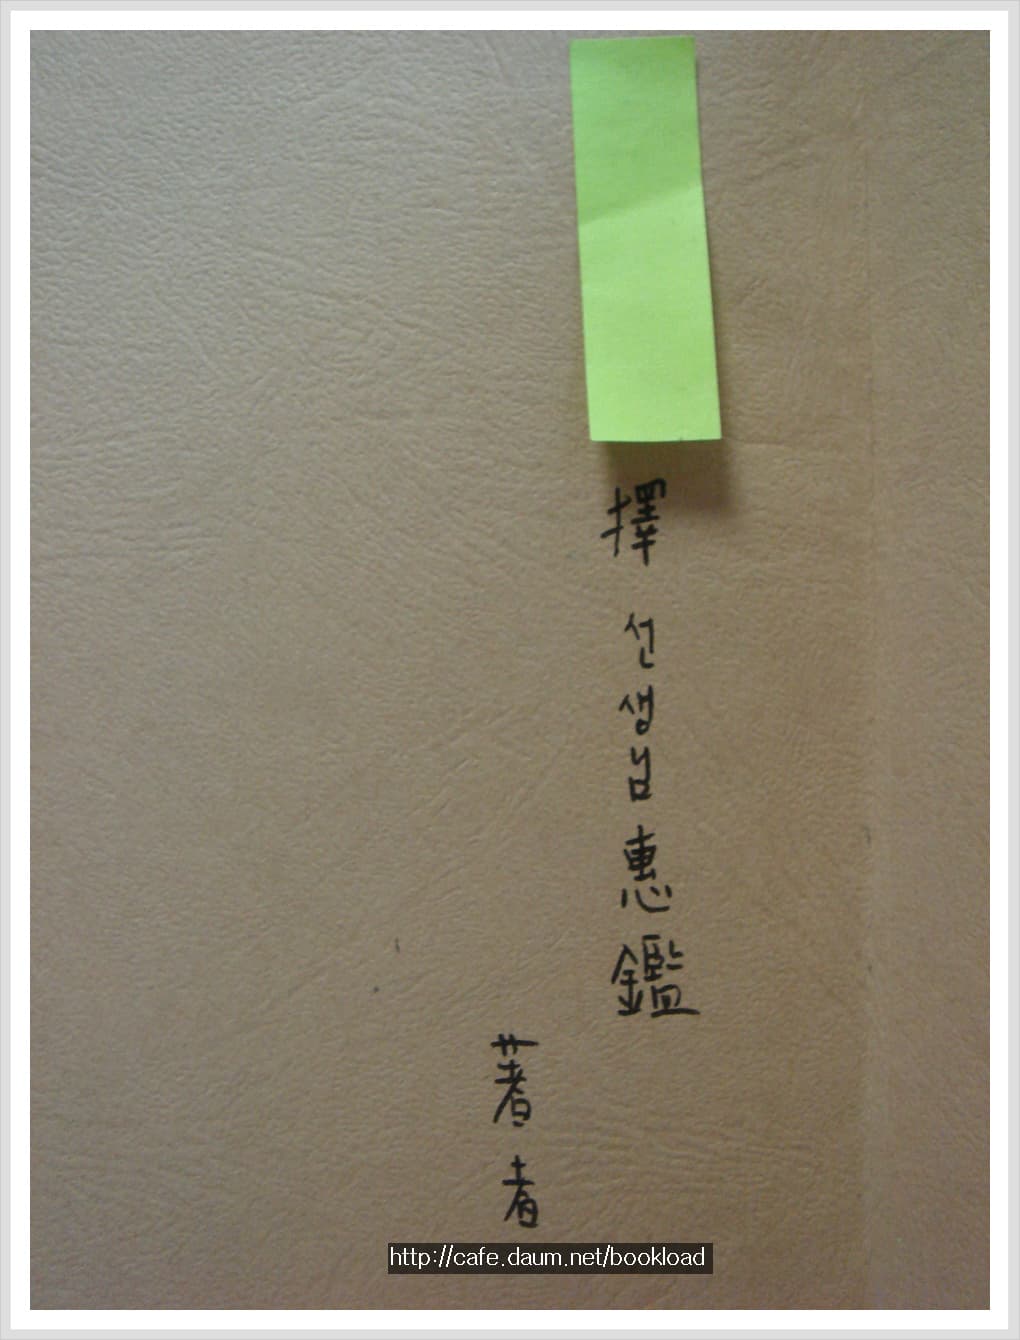 擇 선생님 惠鑑
著者
http://cafe.daum.net/bookload